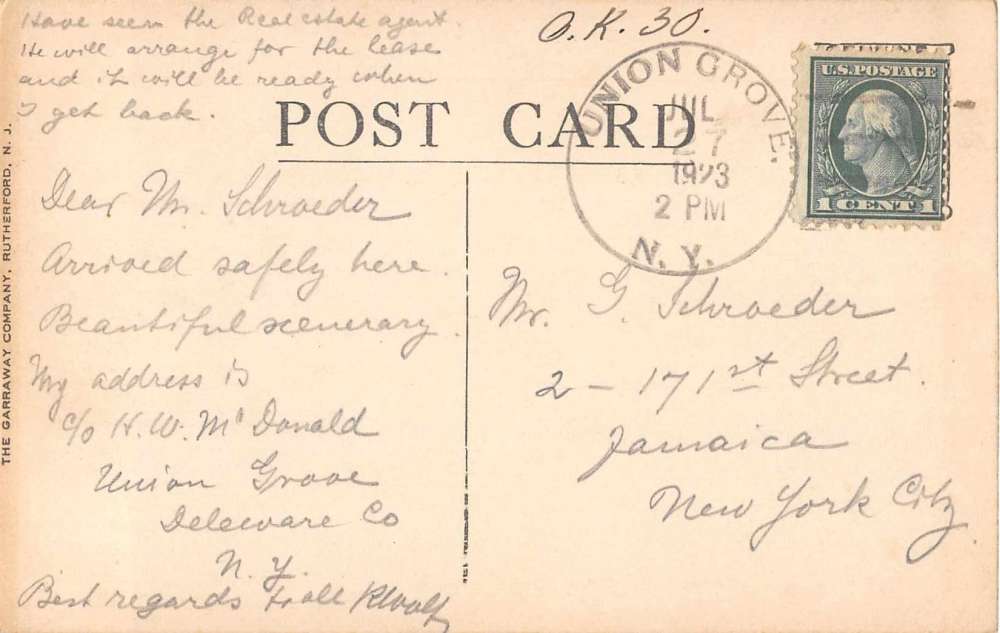 Have seen the Real estate agent.
He will arrange for the lease
and it will be ready when
I get back.
O.K. 30.
POST CARD
UNION GROVE.
JUL
27
1923
2 PM
N.Y.
U.S. POSTAGE
1 CENT 1
Dear Mr. Schroeder
Arrived safely here.
Beautiful scenerary.
My address is
c/o H.W. McDonald
Union Grove
Deleware Co
N.Y.
Best regards to all
Mr. G. Schroeder
2 – 171st Street.
Jamaica
New York City
THE GARRAWAY COMPANY, RUTHERFORD, N. J.